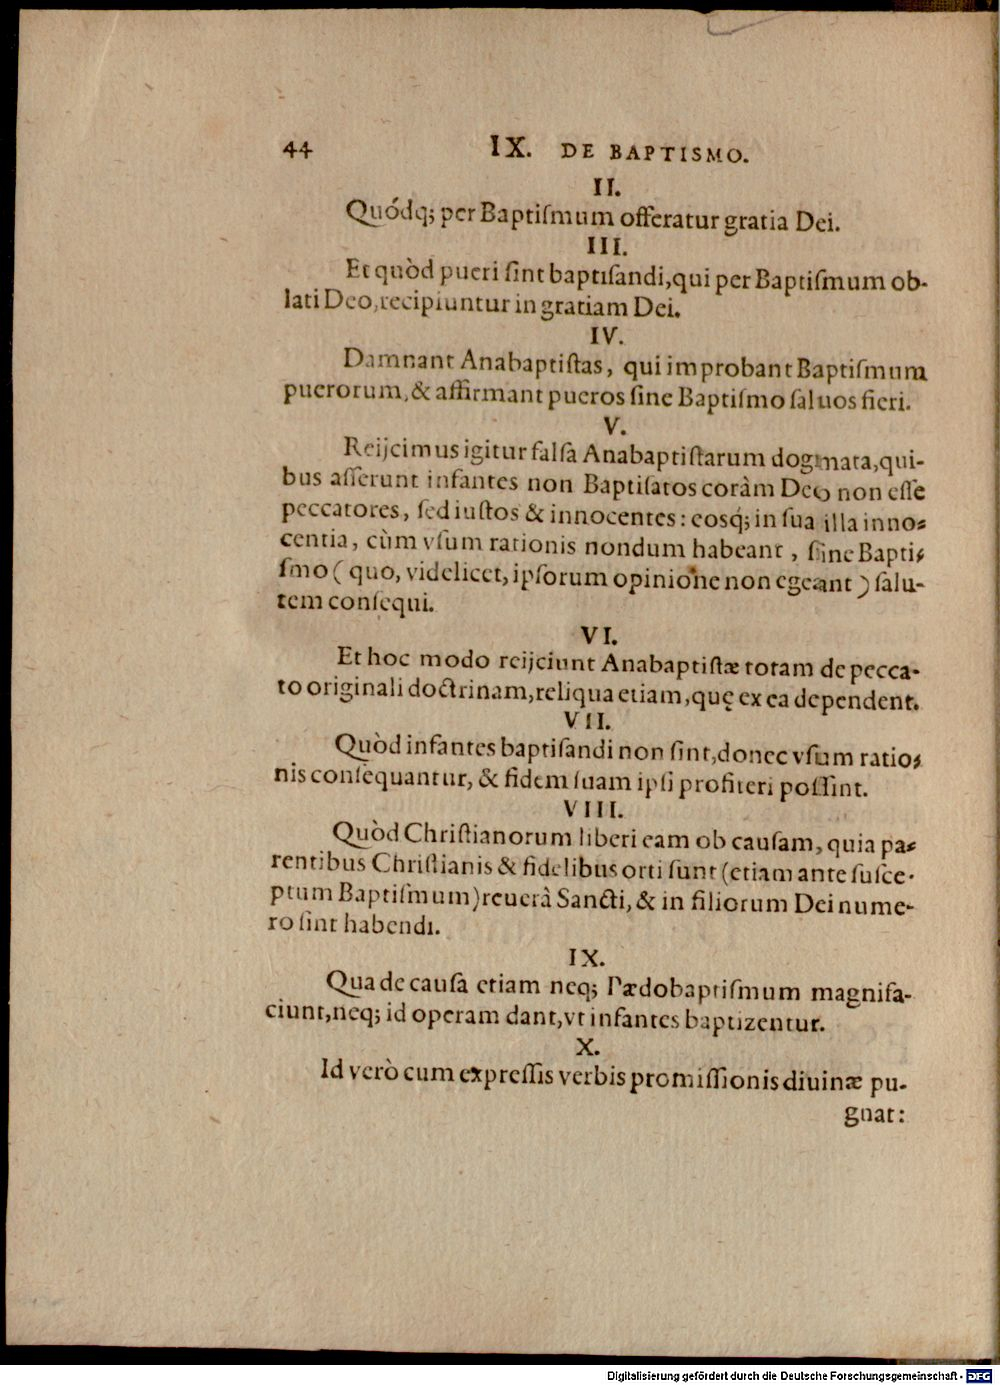 44 IX. DE BAPTISMO.
II.
Quódq; per Baptiſmum offeratur gratia Dei.
III.
Et quòd pueri ſint baptiſandi,qui per Baptiſmum ob-
lati Deo,recipiuntur in gratiam Dei.
IV.
Damnant Anabaptiſtas, qui improbant Baptiſmum
puerorum,& affirmant pueros ſine Baptiſmo ſaluos fieri.
V.
Reijcimus igitur falſa Anabaptiſtarum dogmata,qui-
bus aſſerunt infantes non Baptiſatos coràm Deo non eſſe
peccatores, ſed iuſtos & innocentes: eosq́; in ſua illa inno-
centia, cùm vſum rationis nondum habeant, ſine Bapti-
ſmo (quo, videlicet, ipſorum opinione non egeant) ſalu-
tem conſequi.
VI.
Et hoc modo reijciunt Anabaptiſtæ totam de pecca-
to originali doctrinam,reliqua etiam,quę ex ea dependent.
VII.
Quòd infantes baptiſandi non ſint,donec vſum ratio-
nis conſequantur, & fidem ſuam ipſi profiteri poſſint.
VIII.
Quòd Chriſtianorum liberi eam ob cauſam, quia pa-
rentibus Chriſtianis & fidelibus orti ſunt (etiam ante ſuſce-
ptum Baptiſmum) reuerâ Sancti, & in filiorum Dei nume-
ro ſint habendi.
IX.
Qua de cauſa etiam neq; Pædobaptiſmum magnifa-
ciunt,neq; id operam dant,vt infantes baptizentur.
X.
Id verò cum expreſſis verbis promiſſionis diuinæ pu-
gnat:
Digitalisierung gefördert durch die Deutsche Forschungsgemeinschaft - DFG